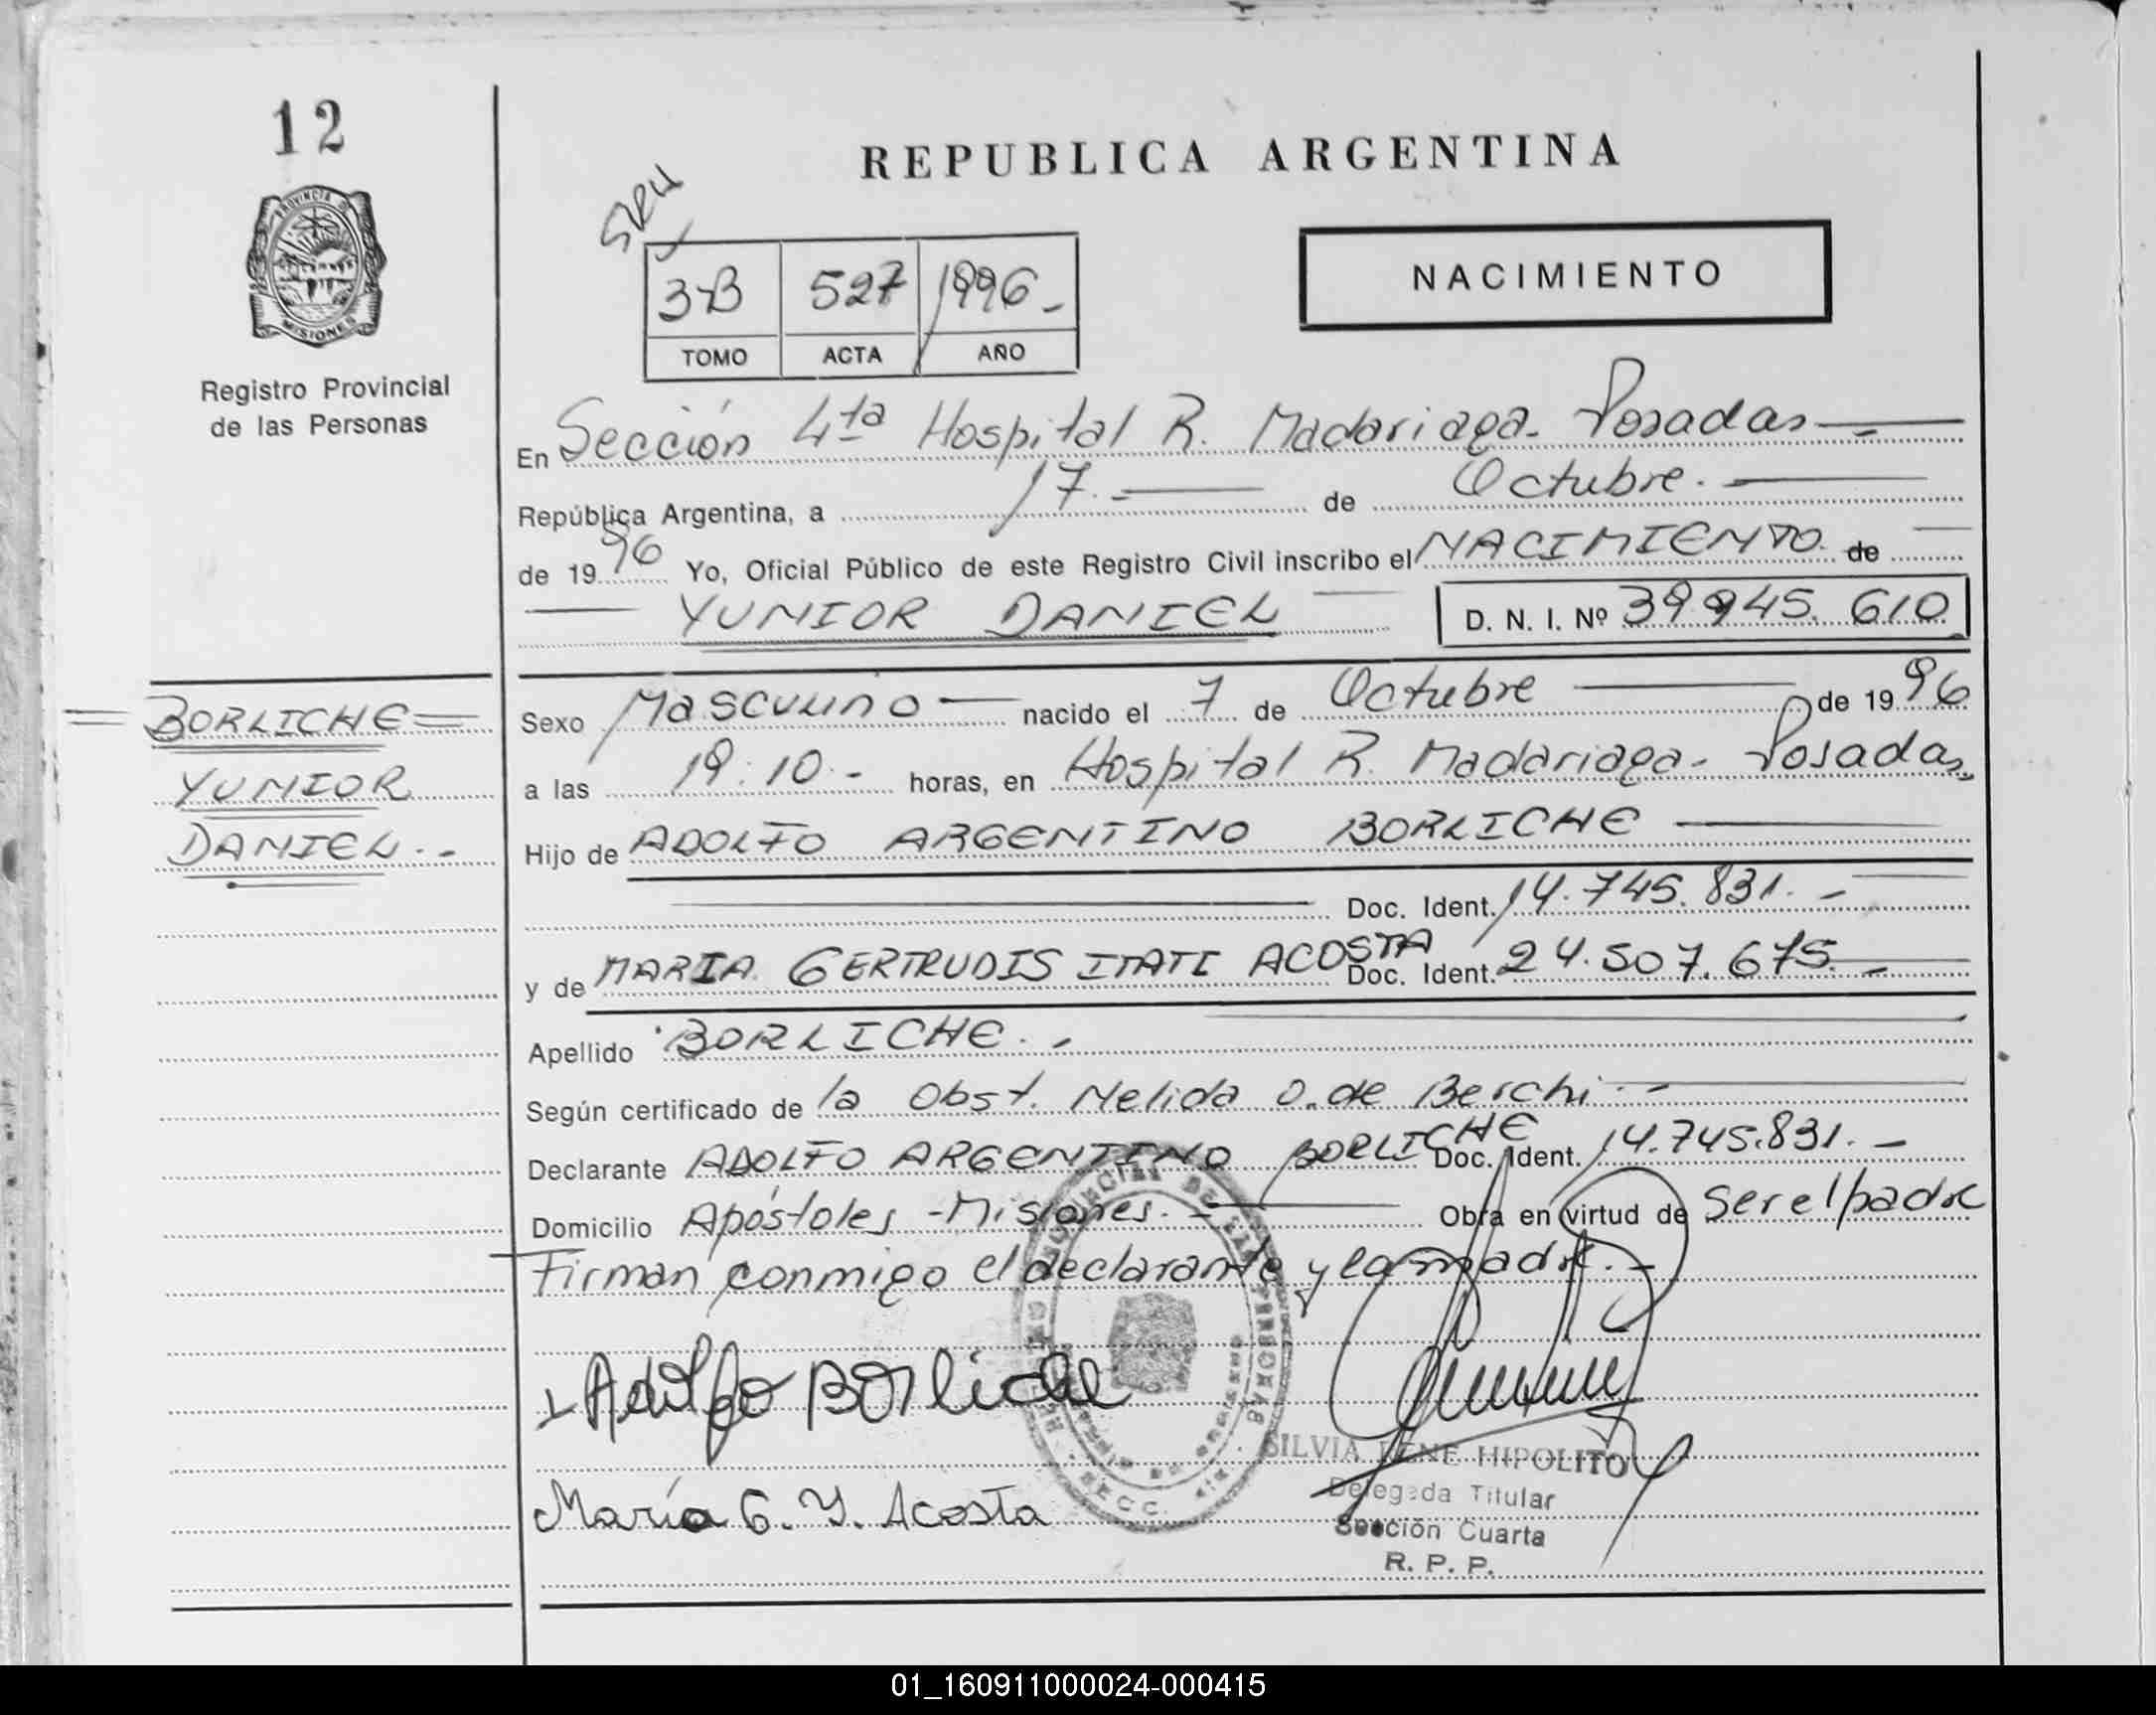 12
PROVINCIA DE
MISIONES
Registro Provincial
de las Personas
REPUBLICA ARGENTINA
3-B 527 1996-
TOMO ACTA AÑO
NACIMIENTO
En Sección 4ta Hospital R. Madariaga- Posadas
República Argentina, a 17.- de Octubre.
de 1996 Yo, Oficial Público de este Registro Civil inscribo el NACIMIENTO de
YUNIOR DANIEL D. N. I. Nº 39.945.610
BORLICHE
YUNIOR
DANIEL.-
Sexo Masculino nacido el 7 de Octubre de 1996
a las 19:10.- horas, en Hospital R. Madariaga- Posadas
Hijo de ADOLFO ARGENTINO BORLICHE
Doc. Ident. 14.745.831.-
y de MARIA GERTRUDIS ITATI ACOSTA Doc. Ident. 24.507.675.-
Apellido BORLICHE.-
Según certificado de la Obst. Nelida O. de Berchi.-
Declarante ADOLFO ARGENTINO BORLICHE Doc. Ident. 14.745.831.-
Domicilio Apóstoles -Misiones.- Obra en virtud de ser el padre
Firman conmigo el declarante y la madre.-
Adolfo Borliche
María G. Y. Acosta
SILVIA IRENE HIPOLITO
Delegada Titular
Sección Cuarta
R. P. P.
01_160911000024-000415